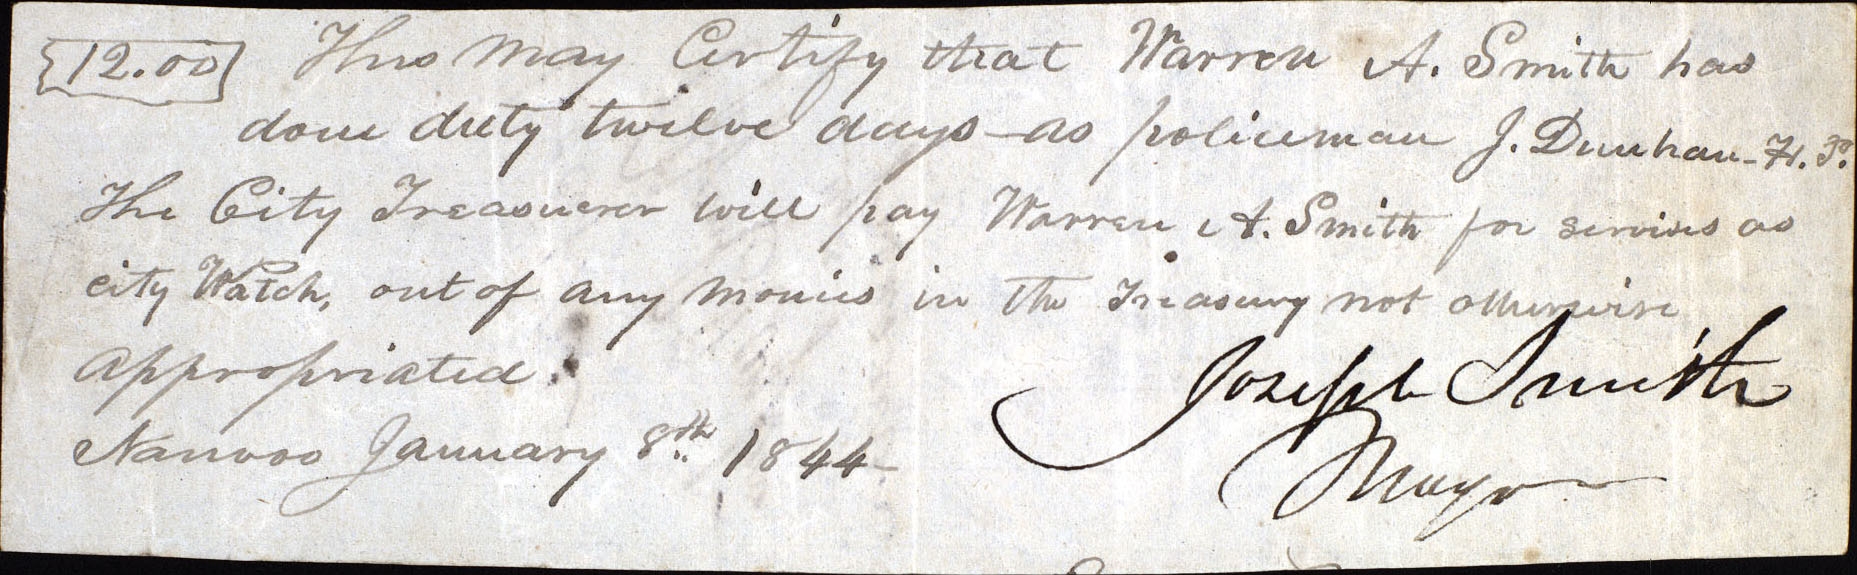 12.00 This may Certify that Warren A. Smith has
done duty twelve days as policeman J. Dunham H. P.
The City Treasuerer will pay Warren A. Smith for servises as
city Watch, out of any monies in the Treasury not otherwise
appropriated.
Joseph Smith
Mayor
Nauvoo January 8th 1844